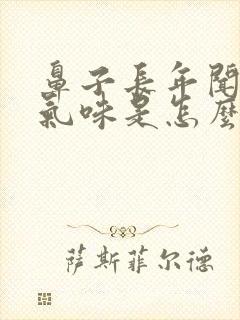 鼻子長年聞
氣味是怎麼
萨斯菲尔德